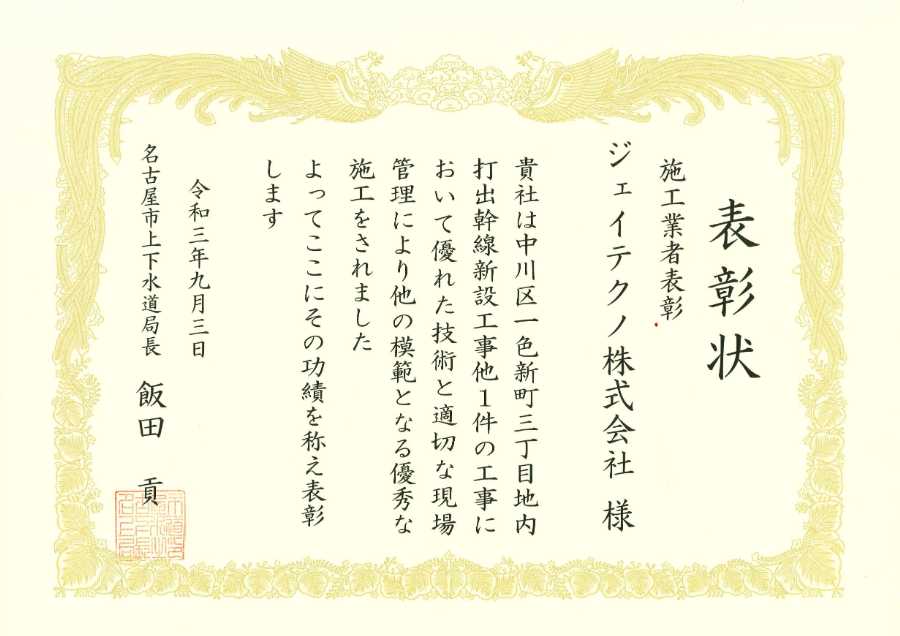 表彰状
施工業者表彰
ジェイテクノ株式会社 様
貴社は中川区一色新町三丁目地内
打出幹線新設工事他1件の工事に
おいて優れた技術と適切な現場
管理により他の模範となる優秀な
施工をされました
よってここにその功績を称え表彰
します
令和三年九月三日
名古屋市上下水道局長 飯田 貢